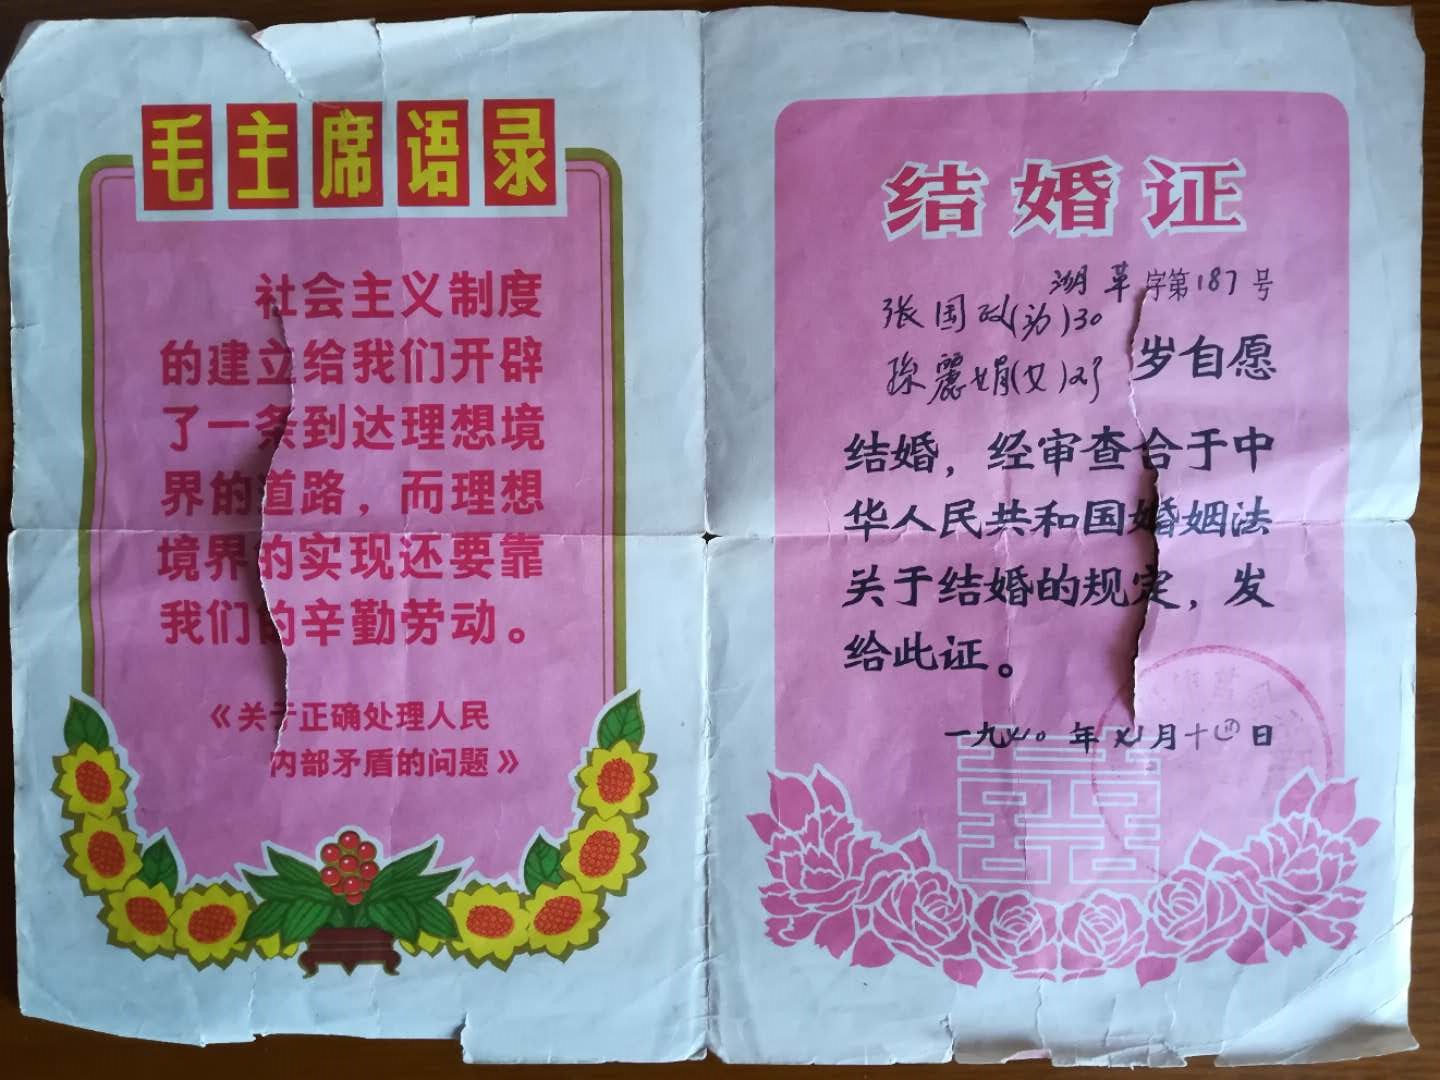 毛主席语录
社会主义制度
的建立给我们开辟
了一条到达理想境
界的道路，而理想
境界的实现还要靠
我们的辛勤劳动。
《关于正确处理人民
内部矛盾的问题》
结婚证
湖革字第187号
张国政(男)30
孫麗娟(女)
岁自愿
结婚，经审查合于中
华人民共和国婚姻法
关于结婚的规定，发
给此证。
一九七〇年 月十四日